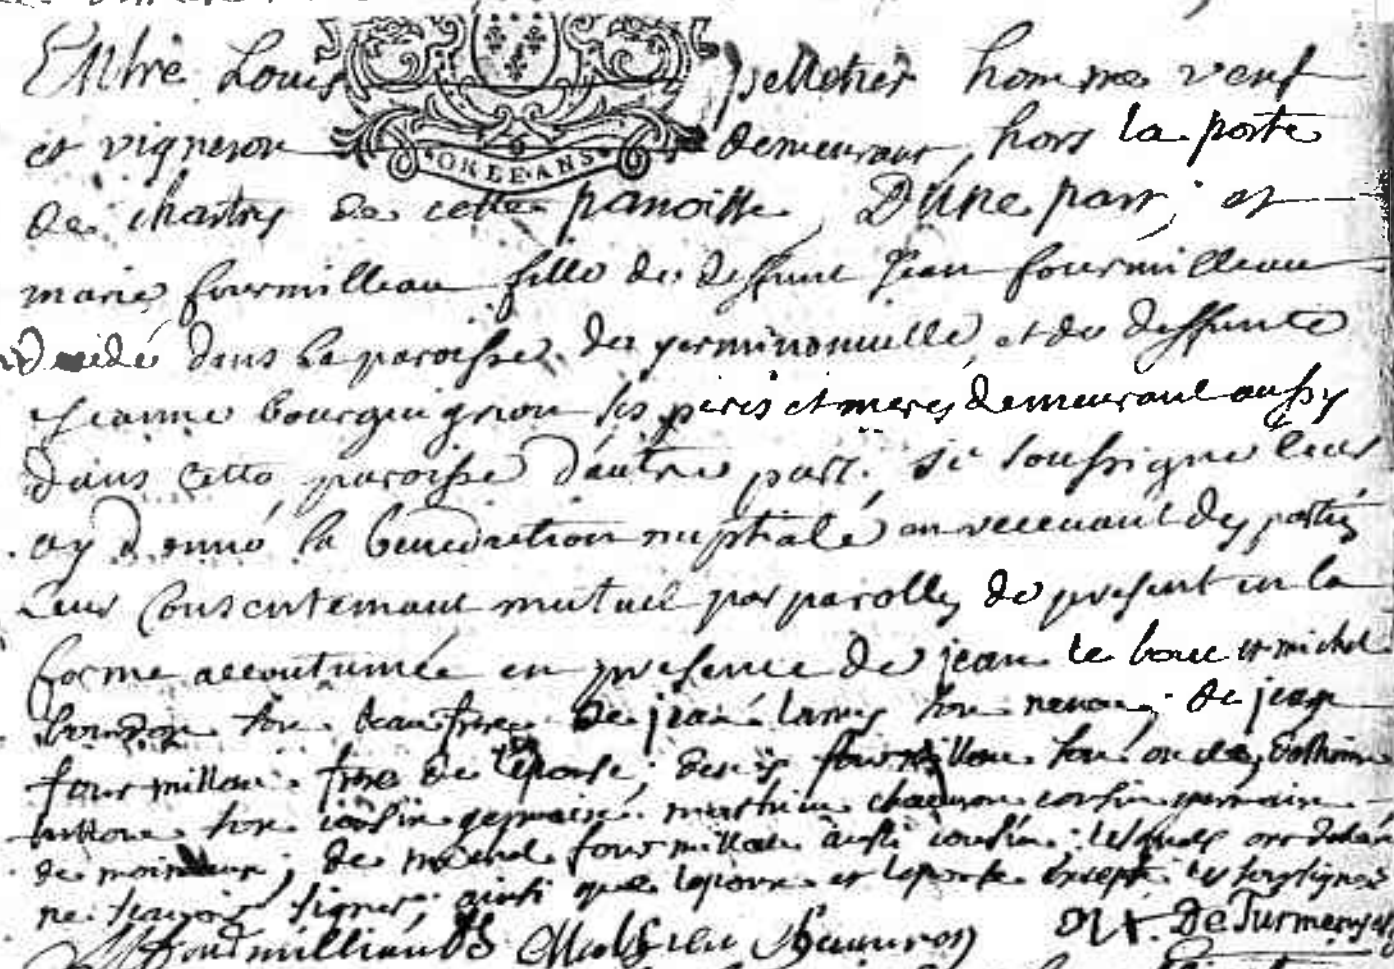 Entre Louis pelletier homme veuf
et vigneron demeurant, hors la porte
ORLEANS
de chartres de cette paroisse, D'une part; et
marie fourmilleau fille de deffunt Jean fourmilleau
dans la paroisse de germinonuille, et de deffunte
jeanne bourguignon ses peres et meres demeurant aussy
dans cette paroisse d'autre part. je soussigne leur
ay donné la benediction nuptiale en recevant des parties
Leur consentemant mutuel par parolles de present en la
forme accoutumée en presence de jean le bouc et michel
son beaufrere de jean lamy son neveu; de jean
fourmillau frere de l'epouse; denis fourmillau son oncle,
son cousin germain. mathieu chauuron cousin germain
de ; de michel fourmillau aussi cousin; lesquels ont declaré
ne sçavoir signer; ainsi que l'epoux et l'epouse excepté les soussignés
fourmilliau DS Mathieu Chauuron De Turmenyes